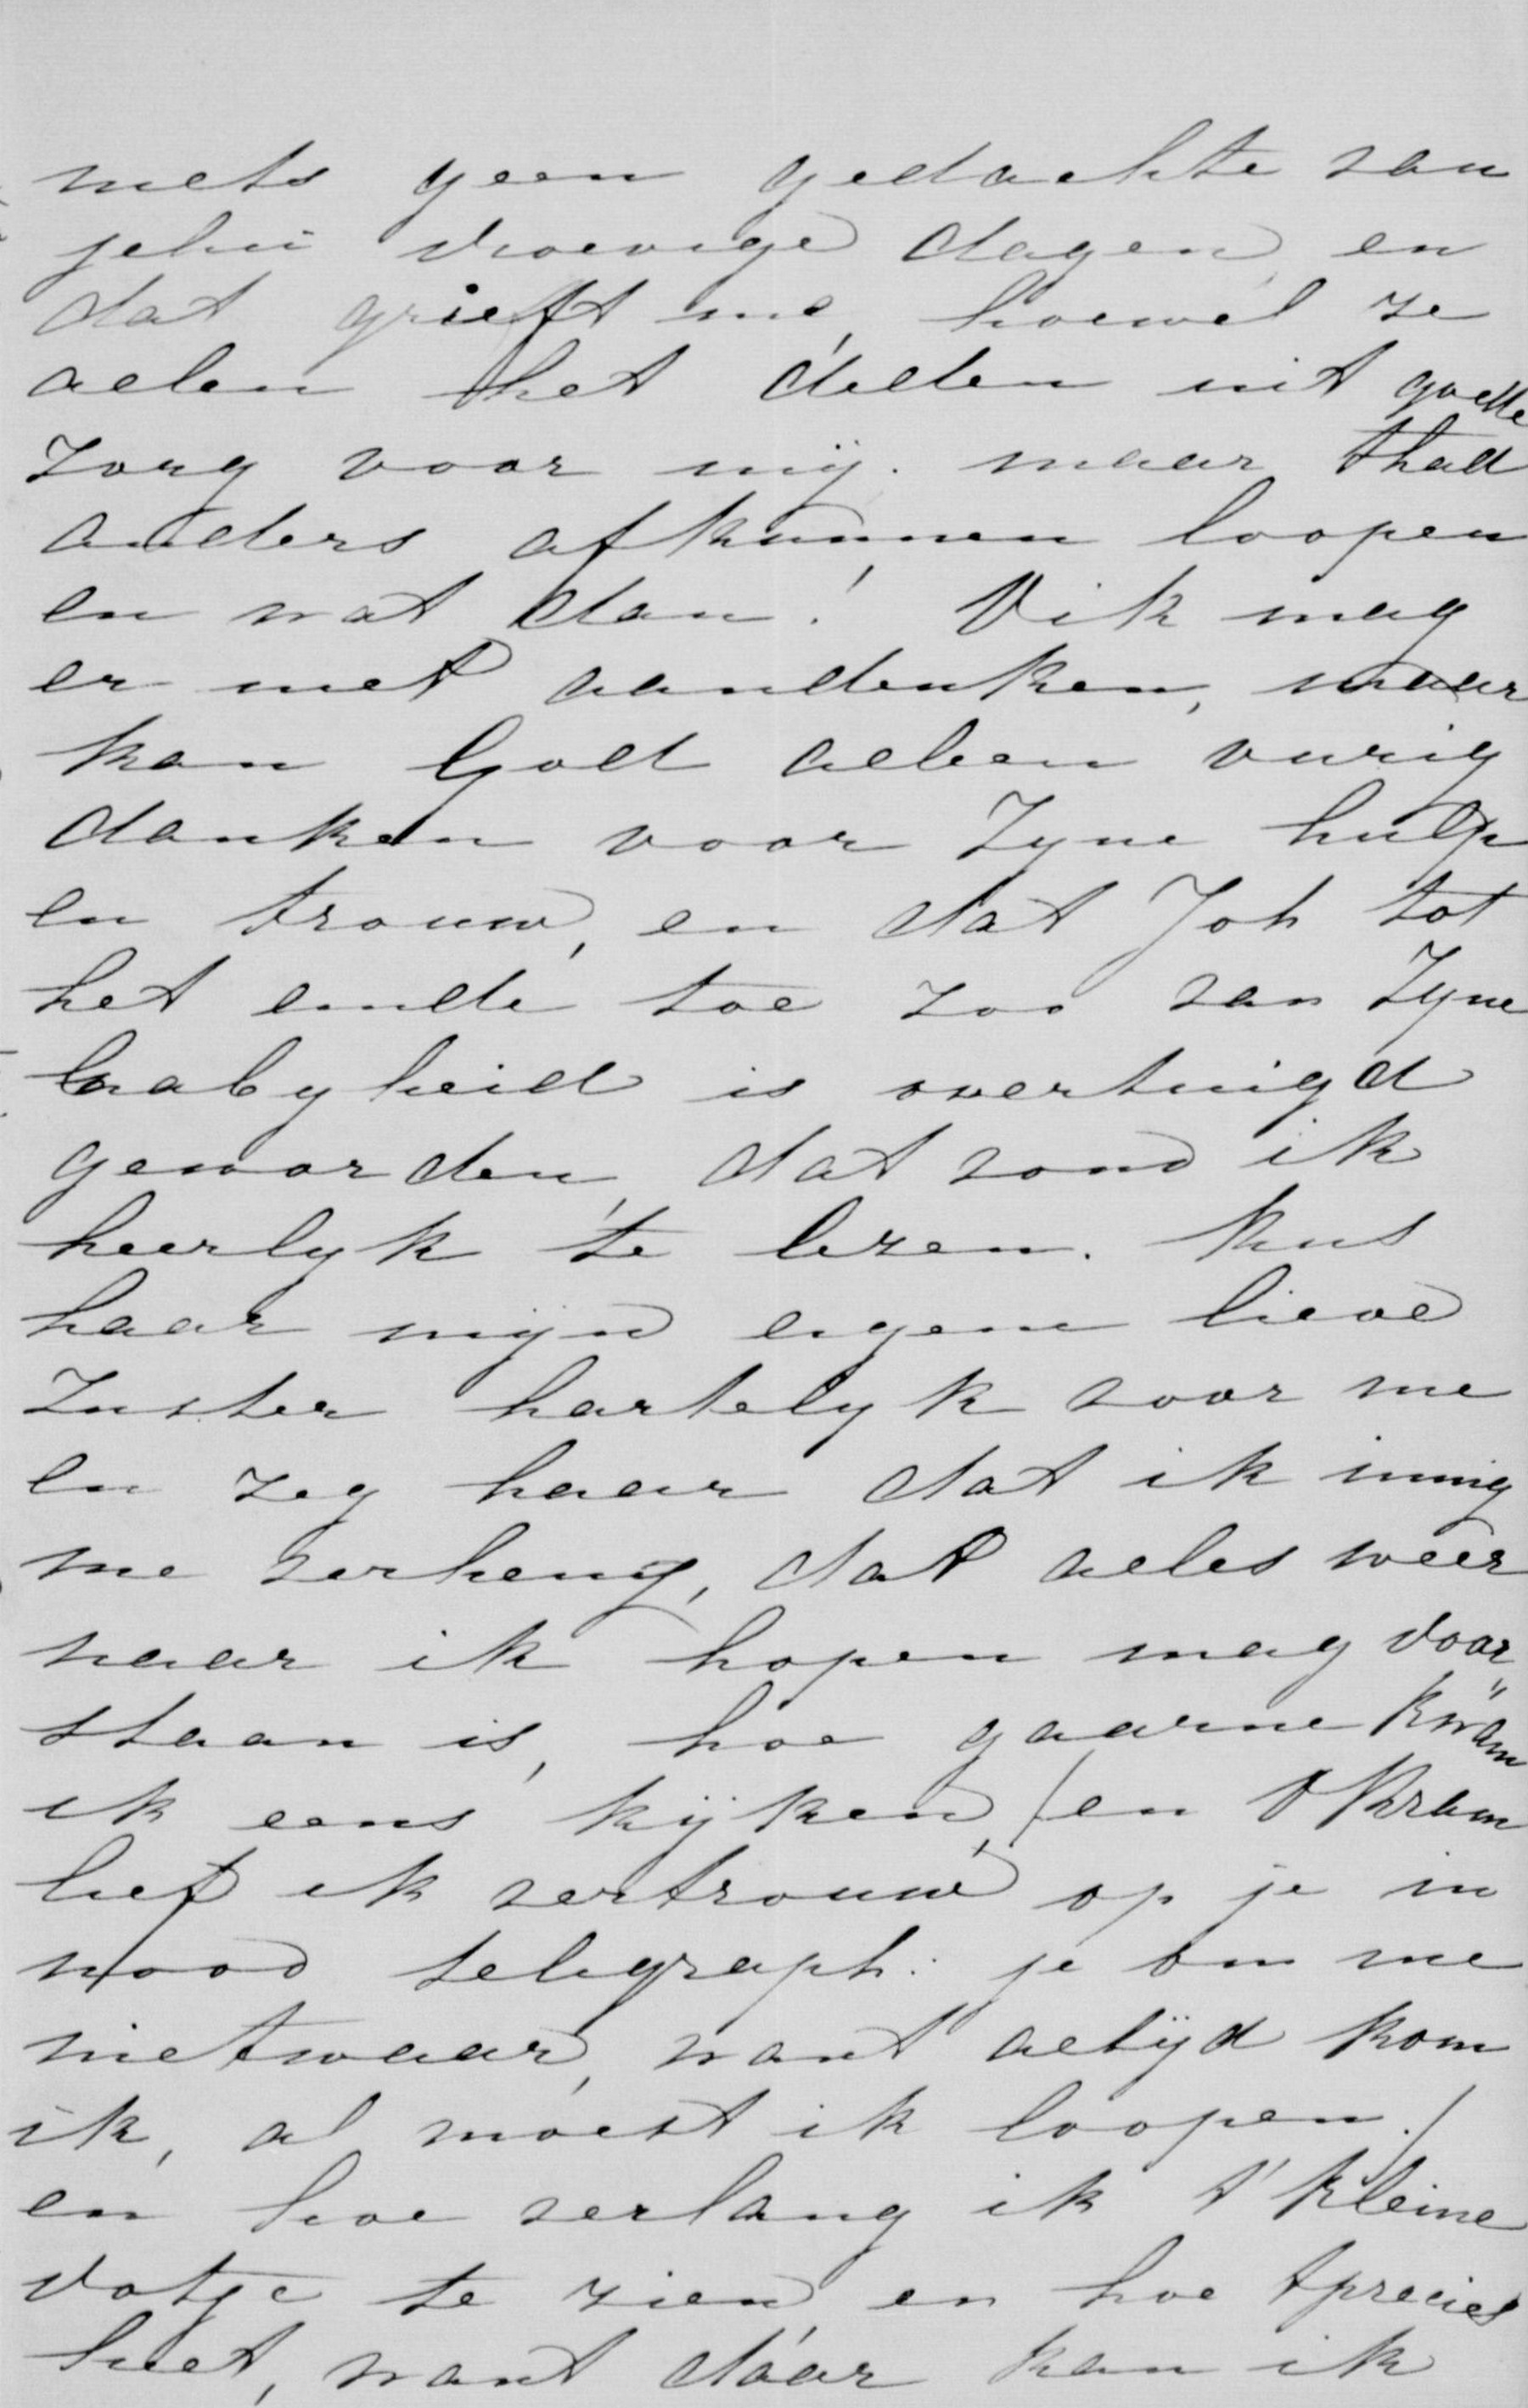 niets geen gedachte van
jelui droevige dagen, en
dat grieft me, hoewel ze
allen het deden uit goede
zorg voor mij. maar thad
anders afkunnen loopen
en wat dan! O ik mag
er niet aandenken, maar
kan God alleen vurig
danken voor Zyne hulp
en trouw, en dat Joh tot
het einde toe zoo van Zyne
nabyheid is overtuigd
geworden, dat vond ik
heerlyk te lezen. Kus
haar myn eigene lieve
Zuster hartelyk voor me
en zeg haar dat ik innig
me verheug, dat alles weer
naar ik hopen mag voor
staan is, hoe gaarne kwam
ik eens kijken, (en O Bram
lief ik vertrouw op je in
nood telegraph: je om me
nietwaar, want altijd kom
ik, al moest ik loopen.)
en hoe verlang ik t' kleine
dotje te zien en hoe tprecies
heet, want dáar kan ik